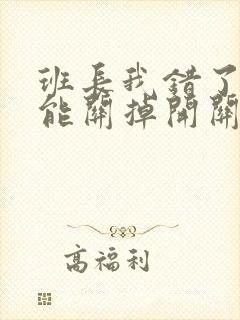 班长我错了
能關掉開關
高福利